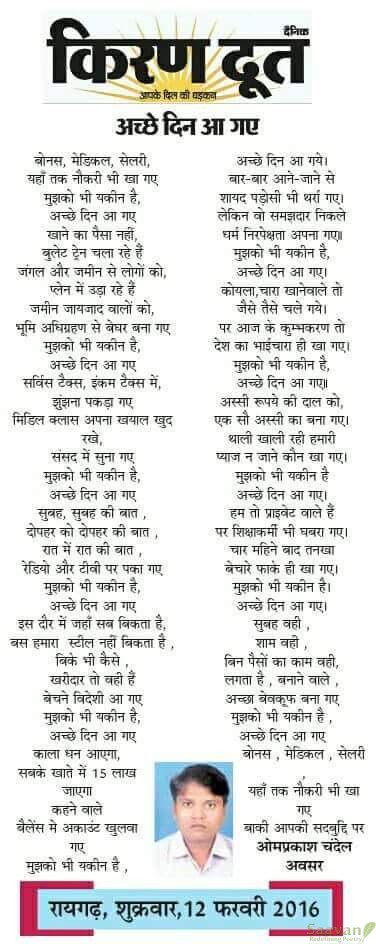 दैनिक
किरण दूत
आपके दिल की धड़कन
अच्छे दिन आ गए
बोनस, मेडिकल, सेलरी,
यहाँ तक नौकरी भी खा गए
मुझको भी यकीन है,
अच्छे दिन आ गए
खाने का पैसा नहीं,
बुलेट ट्रेन चला रहे हैं
जंगल और जमीन से लोगों को,
प्लेन में उड़ा रहे हैं
जमीन जायजाद वालों को,
भूमि अधिग्रहण से बेघर बना गए
मुझको भी यकीन है,
अच्छे दिन आ गए
सर्विस टैक्स, इंकम टैक्स में,
झुंझना पकड़ा गए
मिडिल क्लास अपना खयाल खुद
रखे,
संसद में सुना गए
मुझको भी यकीन है,
अच्छे दिन आ गए
सुबह, सुबह की बात ,
दोपहर को दोपहर की बात ,
रात में रात की बात ,
रेडियो और टीवी पर पका गए
मुझको भी यकीन है,
अच्छे दिन आ गए
इस दौर में जहाँ सब बिकता है,
बस हमारा स्टील नहीं बिकता है ,
बिके भी कैसे ,
खरीदार तो वही हैं
बेचने विदेशी आ गए
मुझको भी यकीन है,
अच्छे दिन आ गए
काला धन आएगा,
सबके खाते में 15 लाख
जाएगा
कहने वाले
बैलेंस मे अकाउंट खुलवा
गए
मुझको भी यकीन है ,
अच्छे दिन आ गये।
बार-बार आने-जाने से
शायद पड़ोसी भी थर्रा गए।
लेकिन वो समझदार निकले
धर्म निरपेक्षता अपना गए॥
मुझको भी यकीन है,
अच्छे दिन आ गए।
कोयला,चारा खानेवाले तो
जैसे तैसे चले गये।
पर आज के कुम्भकरण तो
देश का भाईचारा ही खा गए।
मुझको भी यकीन है,
अच्छे दिन आ गए॥
अस्सी रूपये की दाल को,
एक सौ अस्सी का बना गए।
थाली खाली रही हमारी
प्याज न जाने कौन खा गए।
मुझको भी यकीन है
अच्छे दिन आ गए।
हम तो प्राइवेट वाले हैं
पर शिक्षाकर्मी भी घबरा गए।
चार महिने बाद तनखा
बेचारे फाके ही खा गए।
मुझको भी यकीन है।
अच्छे दिन आ गए।
सुबह वही ,
शाम वही ,
बिन पैसों का काम वही,
लगता है , बनाने वाले ,
अच्छा बेवकूफ बना गए
मुझको भी यकीन है ,
अच्छे दिन आ गए
बोनस , मेडिकल , सेलरी
,
यहाँ तक नौकरी भी खा
गए
बाकी आपकी सदबुद्दि पर
ओमप्रकाश चंदेल
अवसर
रायगढ़, शुक्रवार,12 फरवरी 2016
Saavan
Redefining Poetry